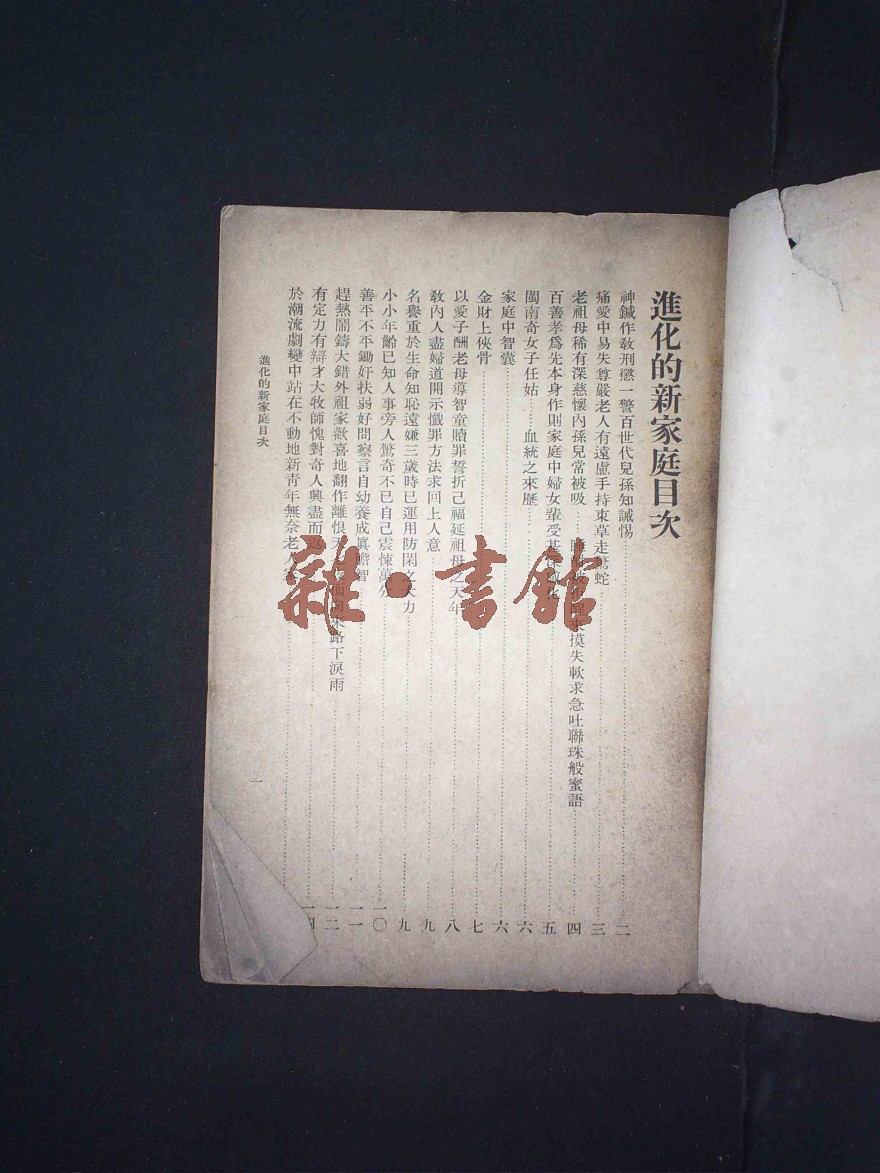 進化的新家庭目次
神鍼作教刑懲一警百世代兒孫知誡惕……二
痛愛中易失尊嚴老人有遠慮手持束草走驚蛇……三
老祖母稀有深慈懷內孫兒常被吸……摸失軟求急吐聯珠般蜜語……四
百善孝爲先本身作則家庭中婦女輩受其……化……五
閩南奇女子任姑……血統之來歷……六
家庭中智囊……六
金財上俠骨……七
以愛子酬老母導智童贖罪誓折己福延祖母之天年……八
教內人盡婦道開示懺罪方法求回上人意……九
名譽重於生命知恥遠嫌三歲時已運用防閑之大力……九
小小年齡已知人事旁人驚奇不已自己震悚萬分……一〇
善平不平鋤奸扶弱好問察言自幼養成眞膽智……一一
趕熱鬧鑄大錯外祖家歡喜地翻作離恨天……來路下淚雨……一二
有定力有辯才大牧師愧對奇人興盡而返……一
於潮流劇變中站在不動地新青年無奈老人
進化的新家庭目次
一
雜·書館